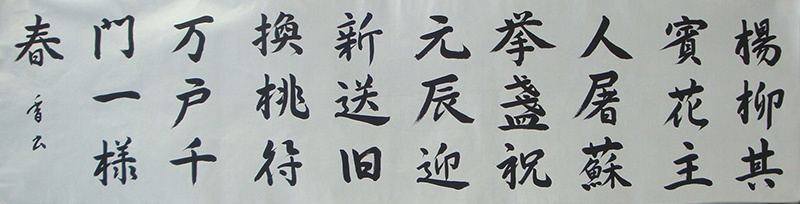 楊柳其
賓花主
人屠蘇
挙盏祝
元辰迎
新送旧
換桃符
万户千
門一様
春
香云